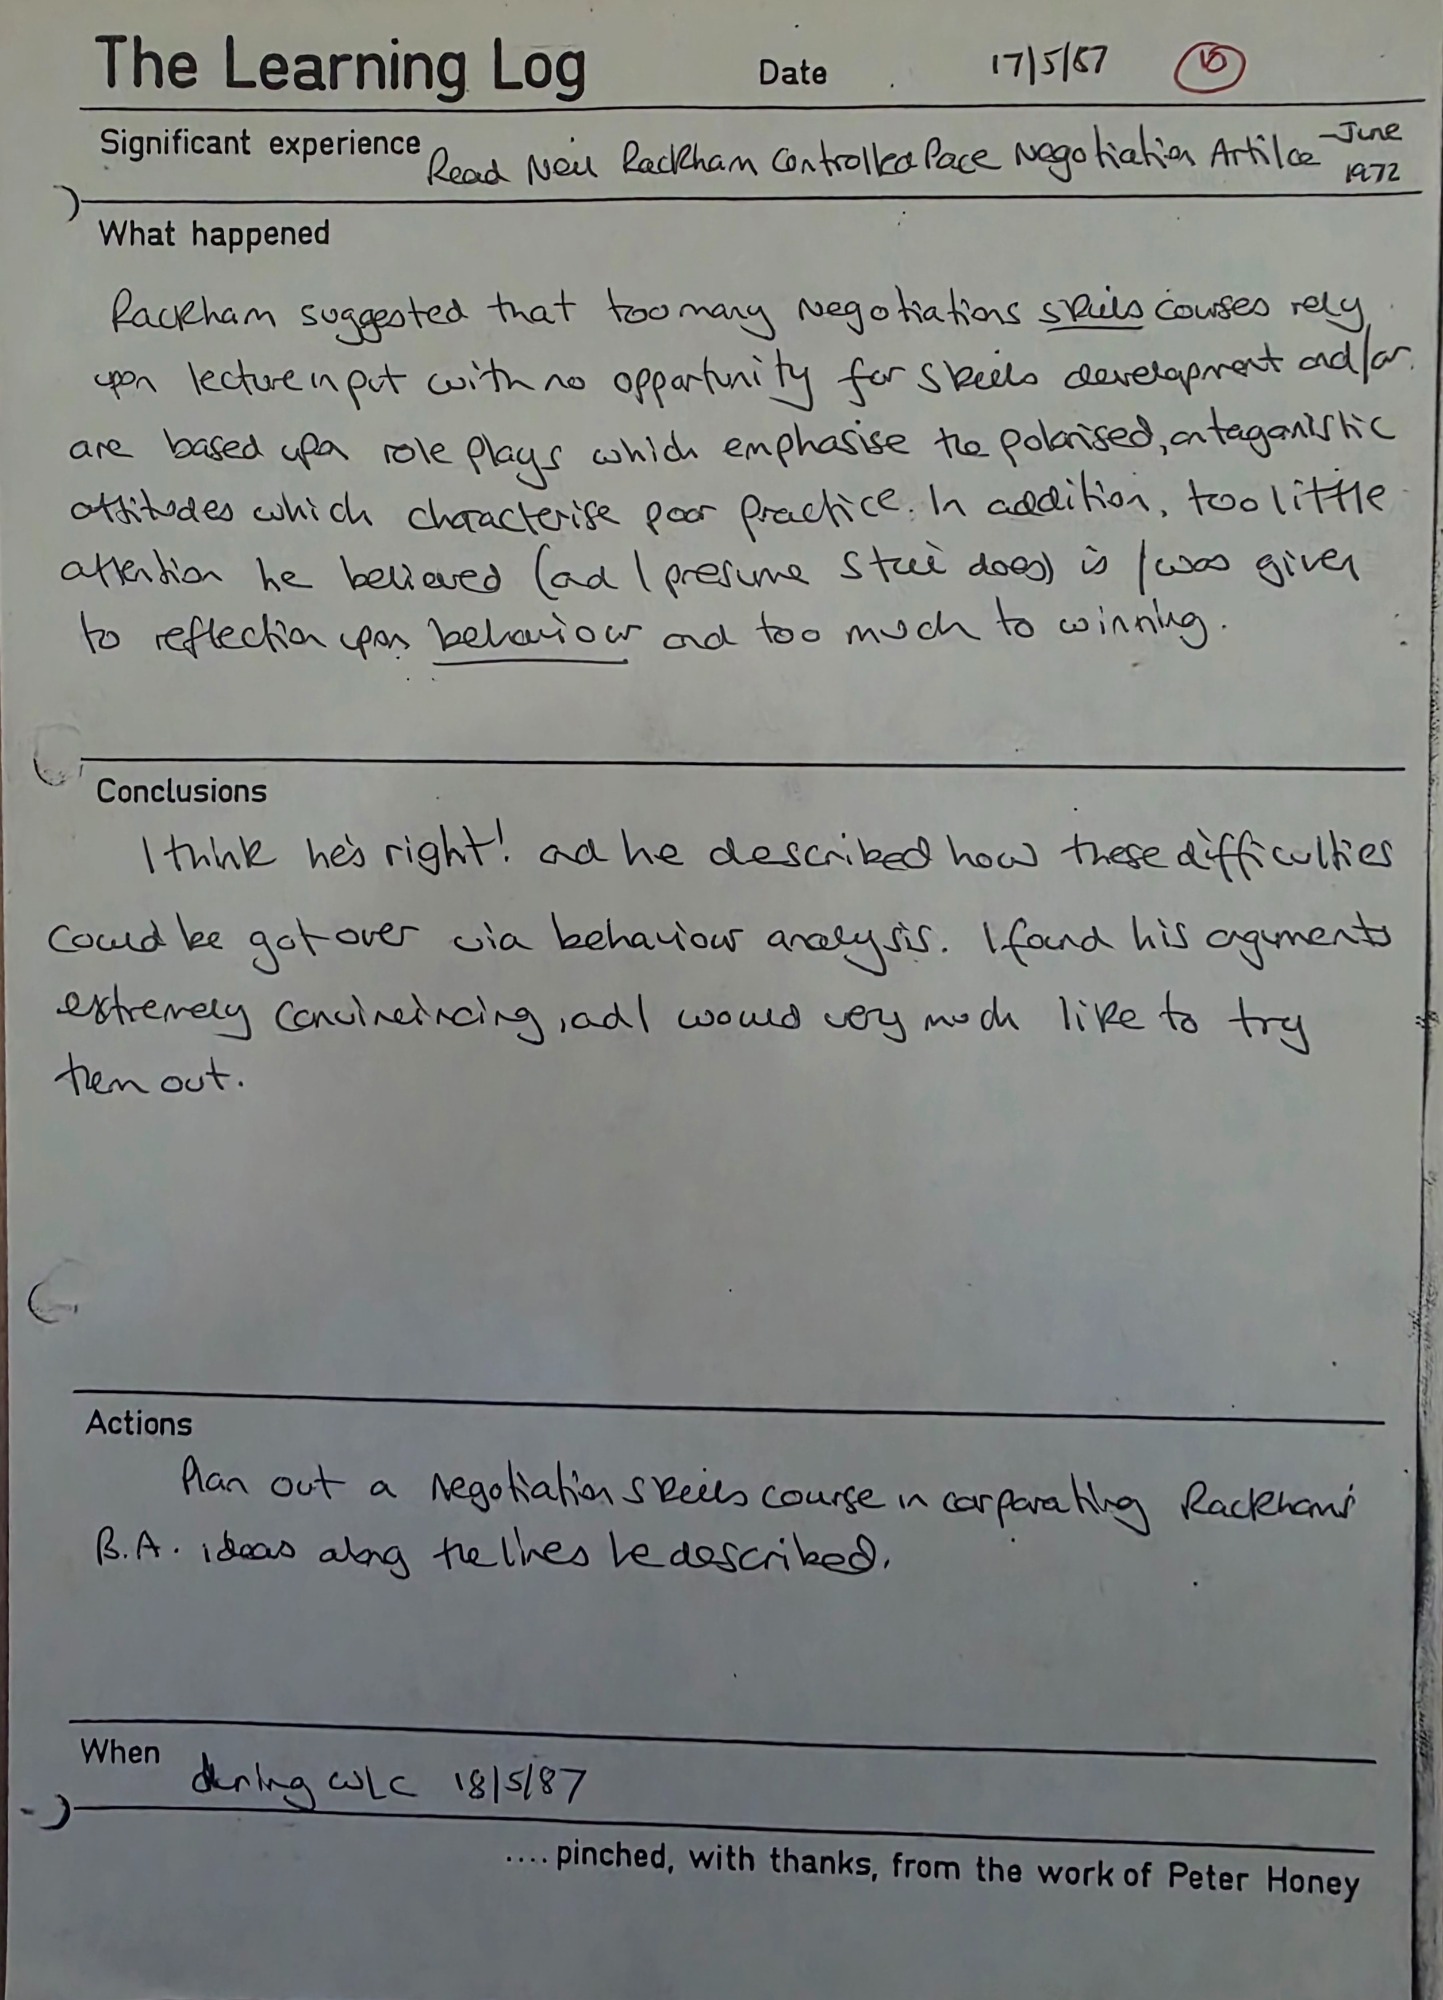 The Learning Log Date 17/5/87
Significant experience Read Neil Rackham Controlled Pace Negotiation Artilce - June 1972
What happened
Rackham suggested that too many Negotiations skills courses rely
upon lecture input with no opportunity for skills development and/or
are based upon role plays which emphasise the polarised, antagonistic
attitudes which characterise poor practice. In addition, too little
attention he believed (and I presume still does) is / was given
to reflection upon behaviour and too much to winning.
Conclusions
I think he's right! and he described how these difficulties
could be got over via behaviour analysis. I found his agyments
extremely convineincing, and I would very much like to try
them out.
Actions
Plan out a Negotiation skills course incorporating Rackham's
B.A. ideas along the lines he described.
When during WLC 18/5/87
.... pinched, with thanks, from the work of Peter Honey